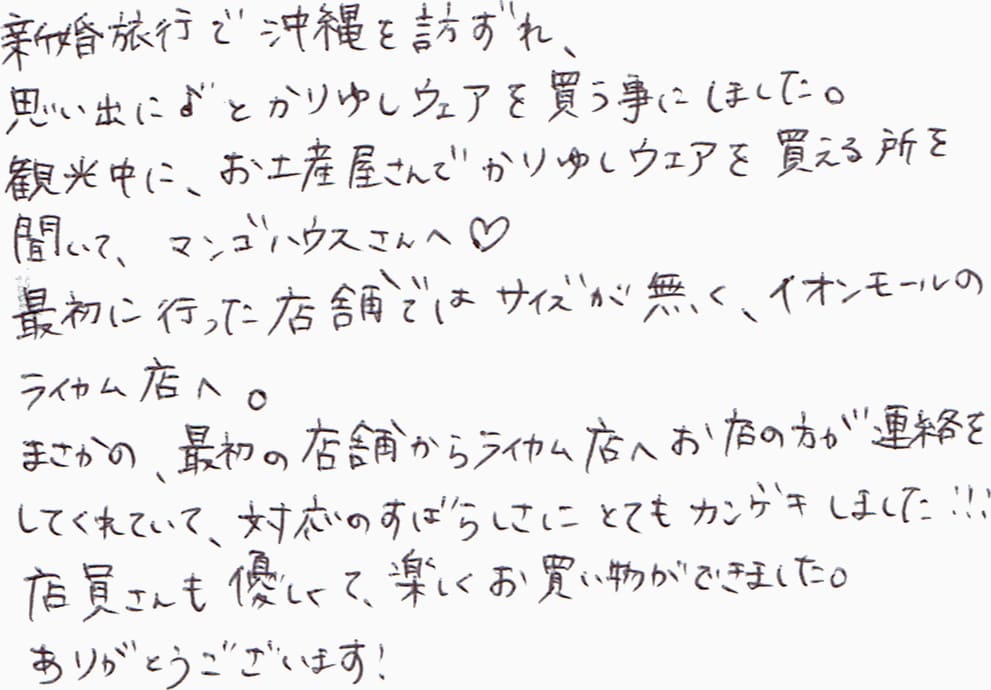 新婚旅行で沖縄を訪ずれ、
思い出に♪とかりゆしウェアを買う事にしました。
観光中に、お土産屋さんでかりゆしウェアを買える所を
聞いて、マンゴハウスさんへ♡
最初に行った店舗ではサイズが無く、イオンモールの
ライカム店へ。
まさかの、最初の店舗からライカム店へお店の方が連絡を
してくれていて、対応のすばらしさにとてもカンゲキしました!!!
店員さんも優しくて、楽しくお買い物ができました。
ありがとうございます!